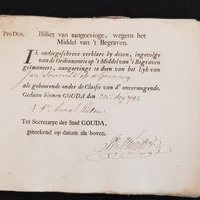 Pro Deo.
Billiet van aangeevinge, wegens het
Middel van 't Begraven.
Ik ondergeschreve verklare by dezen, ingevolge
van de Ordonnantie op 't Middel van 't Begraven
geëmaneert, aangeevinge te doen van het Lyk van
als gehoorende onder de Classe van d' onvermogende.
Gedaan binnen GOUDA den 20 May 1792
Ter Secretarye der Stad GOUDA,
geteekend op datum als boven.